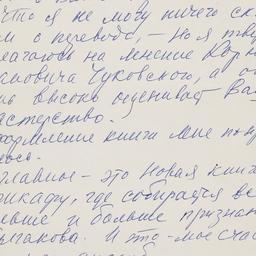 что я не могу ничего ск
м о переводе, – но я тве
лагаюсь на мнение Корн
ановича Чуковского, а о
нь высоко оценивает Ва
астерство.
формление книги мне по
лось.
главное – это новая кни
рикаду, где собирается вс
льше и больше признан
лгакова. И это – мое сча